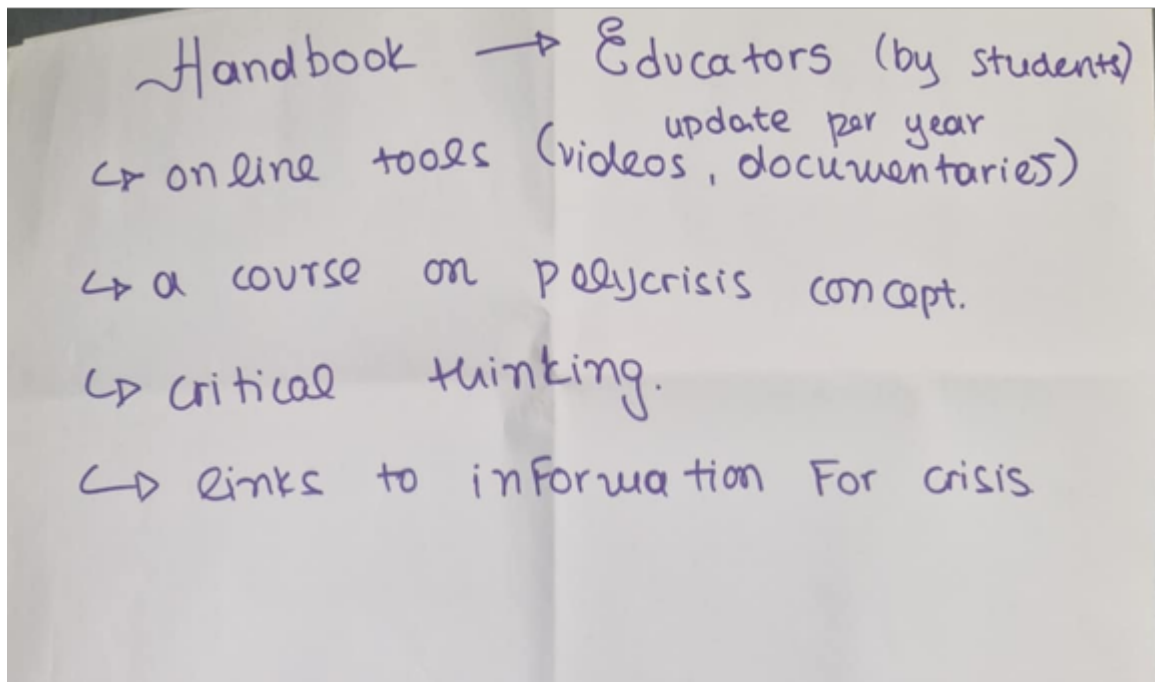 Handbook → Educators (by students)
update per year
↳ online tools (videos, documentaries)
↳ a course on polycrisis concept.
↳ critical thinking.
↳ links to information For crisis